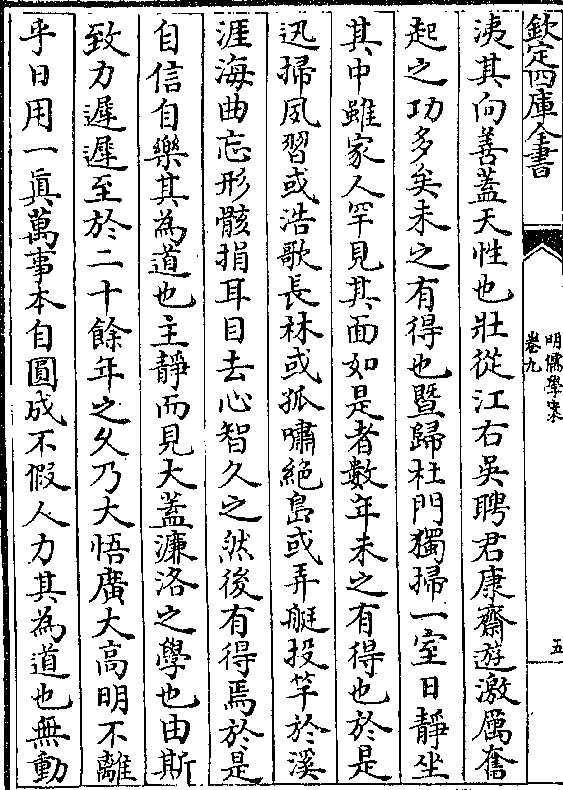 欽定四庫全書
明儒學案
卷九
五
洟其向善蓋天性也壯從江右吳聘君康齋遊激厲奮
起之功多矣未之有得也暨歸杜門獨掃一室日靜坐
其中雖家人罕見其面如是者數年未之有得也於是
迅掃夙習或浩歌長林或孤嘯絶島或弄艇投竿於溪
涯海曲忘形骸捐耳目去心智久之然後有得焉於是
自信自樂其為道也主靜而見大蓋濂洛之學也由斯
致力遲遲至於二十餘年之乆乃大悟廣大高明不離
乎日用一眞萬事本自圓成不假人力其為道也無動